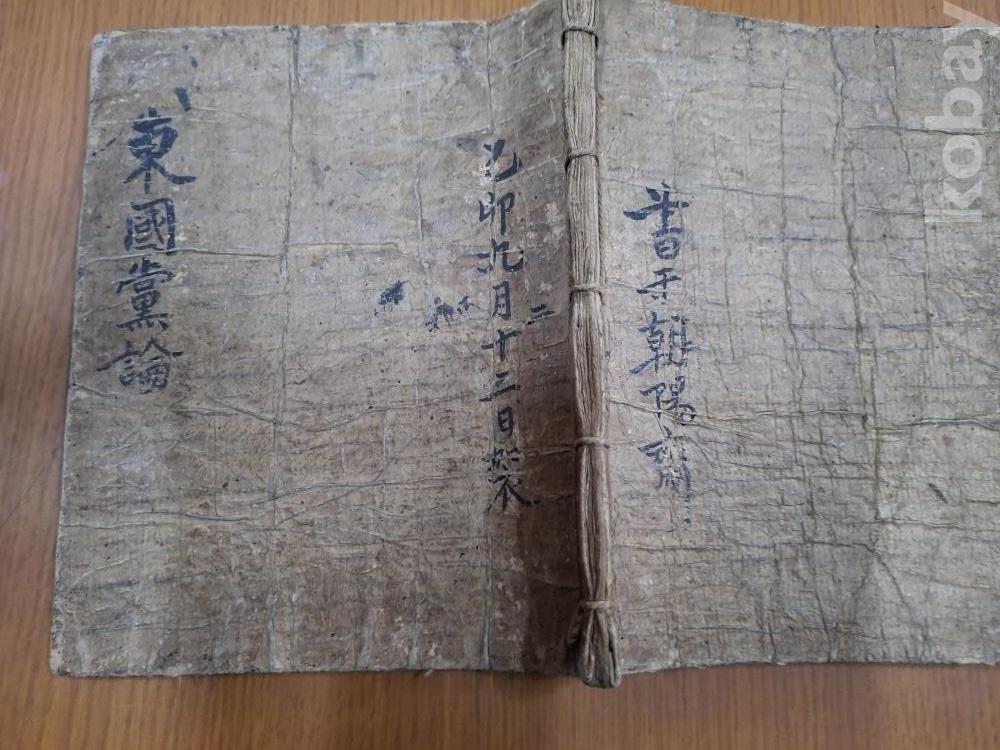 東國黨論
己卯九月十三日製
二
書于朝陽齋
kobay